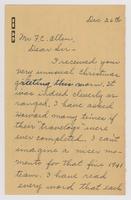 Dec 26th
Mr F.C. Allen.
Dear Sir—
I received your
very unusual Christmas
greeting this noon. It
was indeed cleverly ar-
ranged. I have asked
Howard many times if
their "travelogs" were
ever completed. I can't
imagine a nicer me-
mento for that fine 1941
team. I have read
every word that each